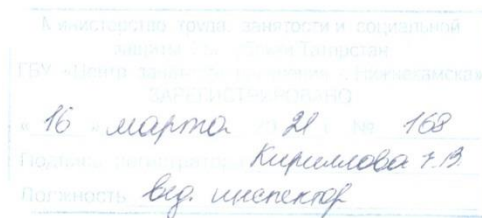 Министерство труда, занятости и социальной
защиты Республики Татарстан
ГБУ «Центр занятости населения г. Нижнекамска»
ЗАРЕГИСТРИРОВАНО
« 16 » марта 20 21 г. № 168
Подпись регистратора Кириллова
Должность вед. инспектор